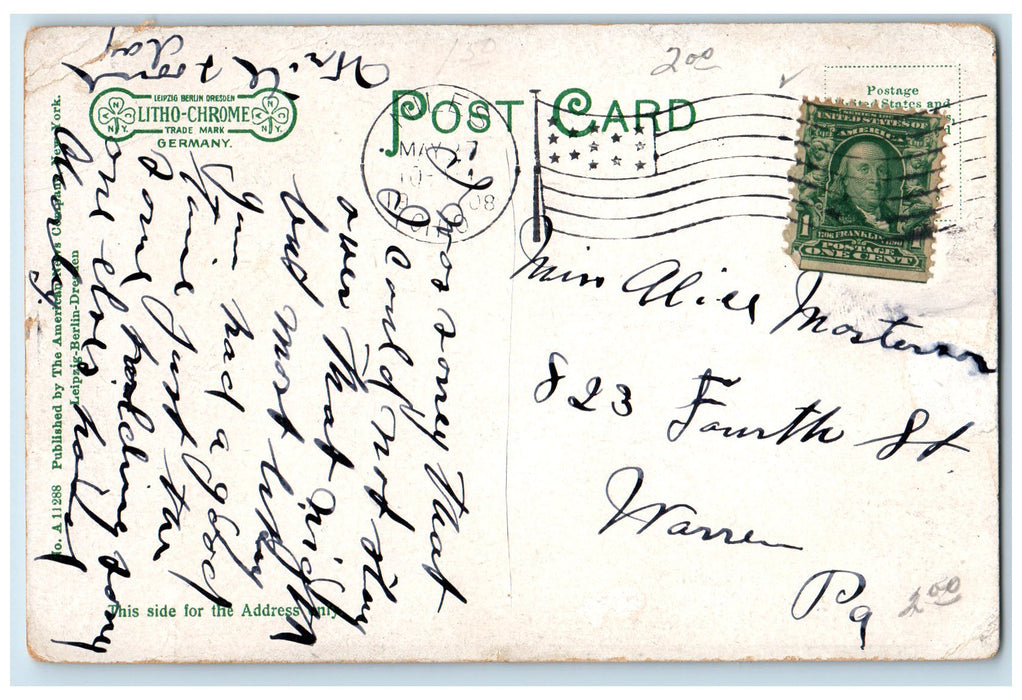 POST CARD
2 00
LEIPZIG BERLIN DRESDEN
LITHO-CHROME
TRADE MARK
GERMANY.
N N
Y. Y.
MAY 27
08
Postage
States and
UNITED STATES OF
AMERICA
FRANKLIN
POSTAGE
1 ONE CENT 1
No. A 11288 Published by The American News Company, New York.
Leipzig-Berlin-Dresden
This side for the Address only
Was sorry that
I could not stay
over that night
but most likely
you had a good
time just the
same
one else's hand
Miss Alice Masterson
823 Fourth St
Warren
Pa
2 00